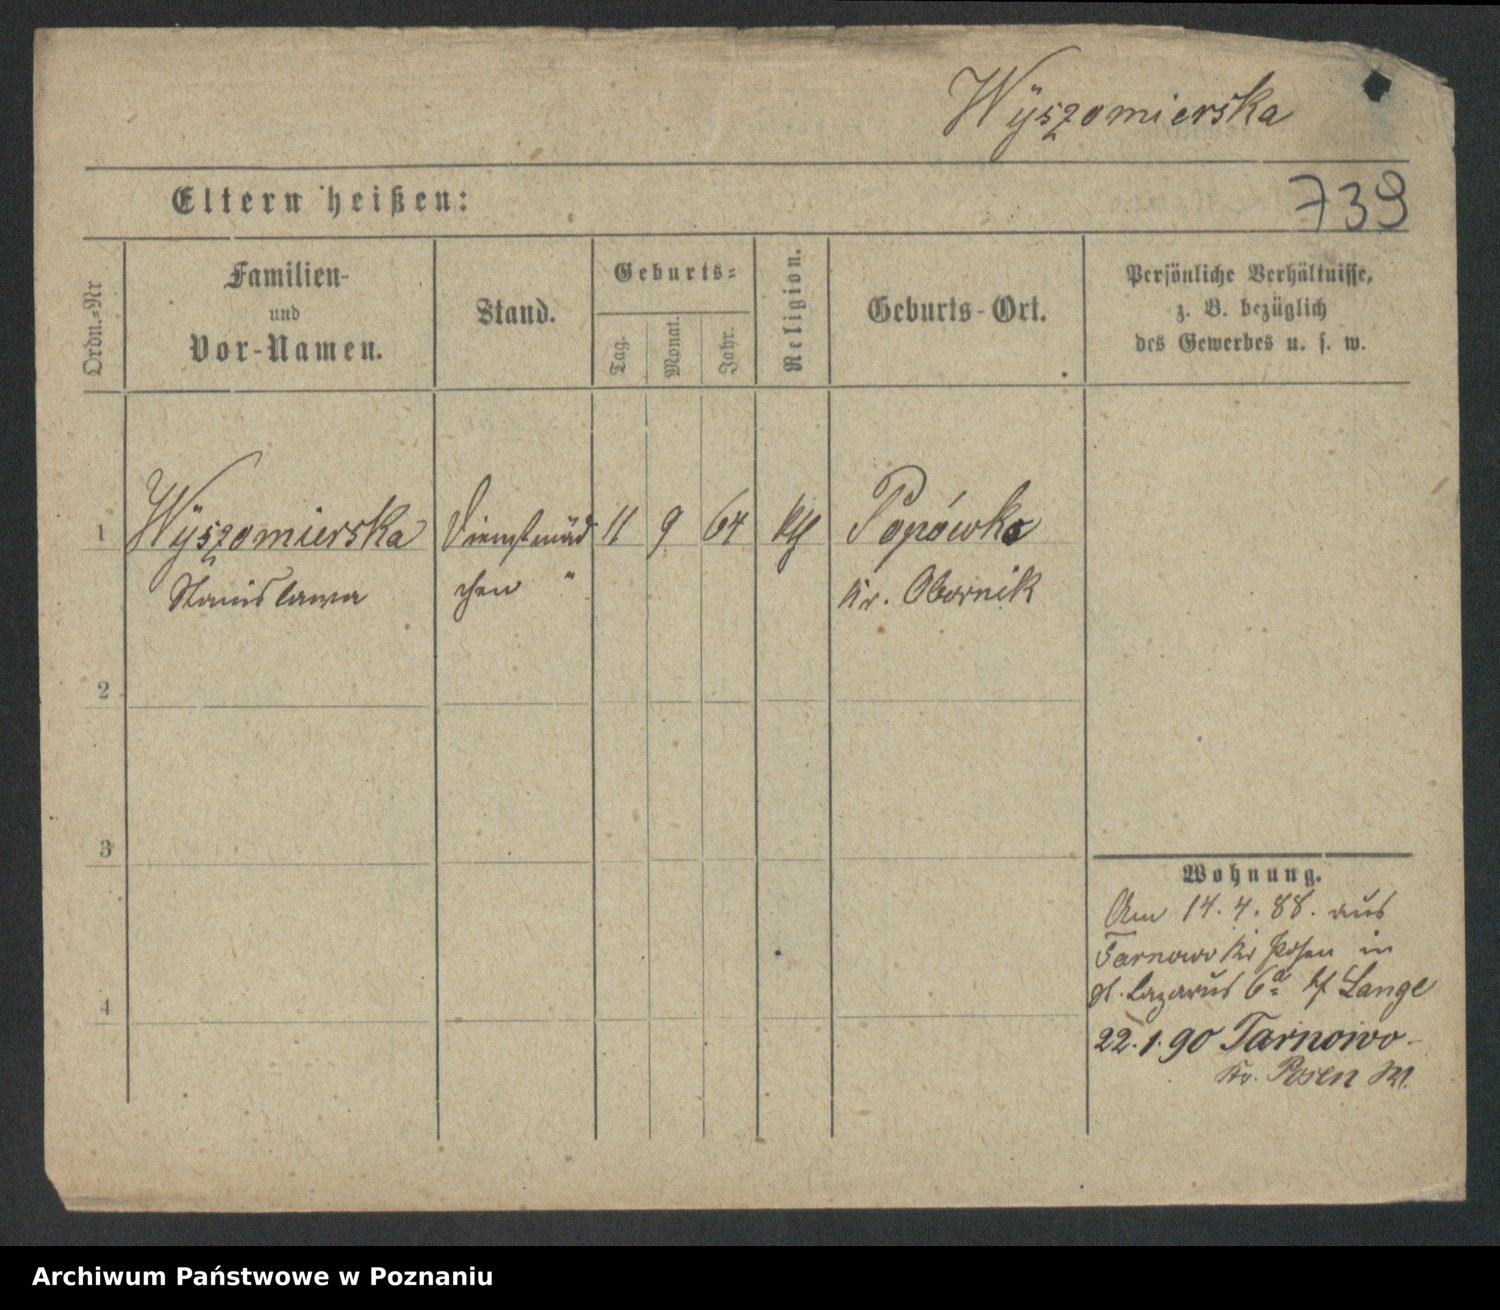 Wÿszomierska
Eltern heißen:
739
Ordn.-Nr
Familien-
und
Vor-Namen.
Stand.
Geburts-
Tag.
Monat.
Jahr.
Religion.
Geburts-Ort.
Persönliche Verhältnisse,
z. B. bezüglich
des Gewerbes u. s. w.
1 Wÿszomierska Dienstmäd 11 9 64 kth Popówko
Stanislawa chen " Kr. Obornik
2
3
4
Wohnung.
Am 14. 4. 88. aus
Tarnowo Kr Posen in
St. Lazarus 6a b/ Lange
22.1.90 Tarnowo-
Kr. Posen
Archiwum Państwowe w Poznaniu